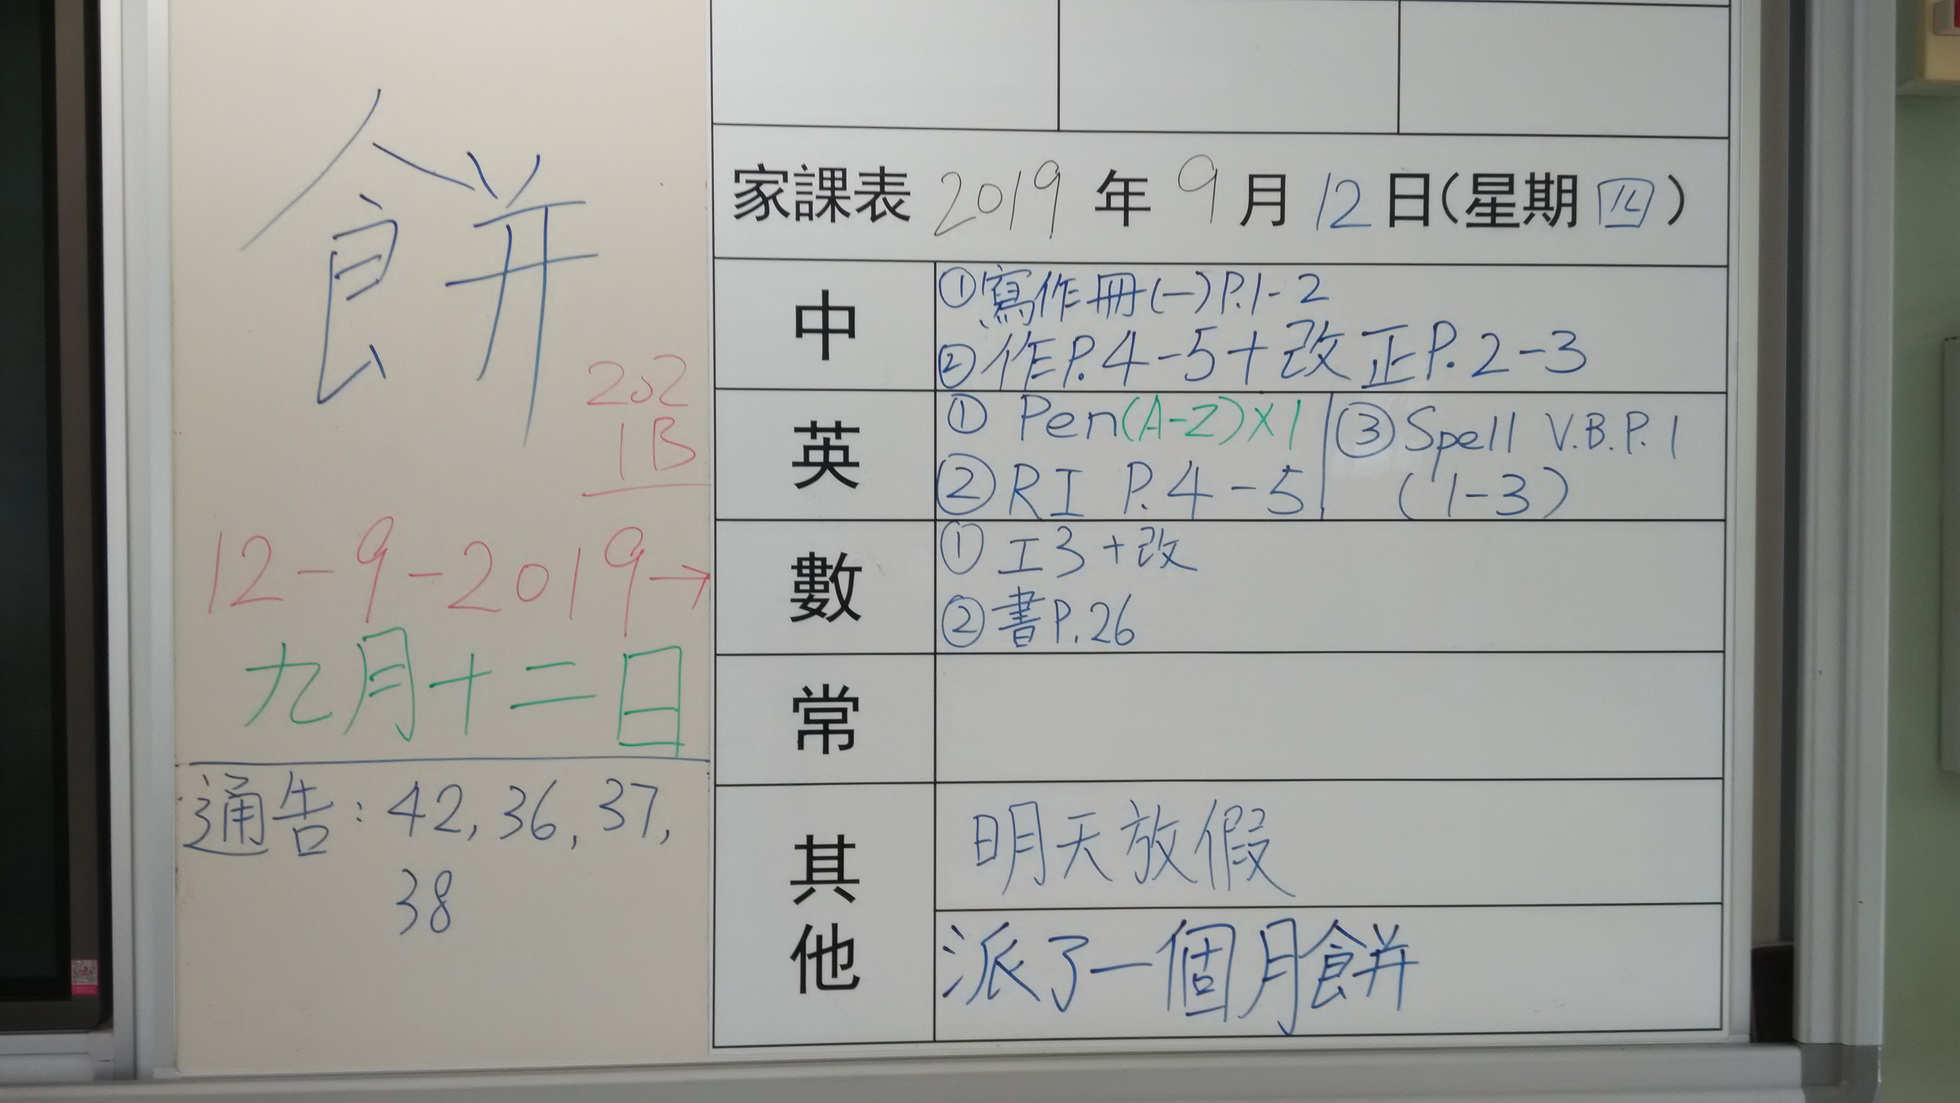 餅
202
1B
12-9-2019→
九月十二日
通告：42, 36, 37,
38
家課表 2019 年 9 月 12 日(星期四)
中
①寫作冊(一)P.1-2
②作P.4-5+改正P.2-3
英
① Pen(A-Z)×1
② RI P.4-5
③ Spell V.B.P.1
(1-3)
數
① 工3+改
② 書P.26
常
其他
明天放假
派了一個月餅